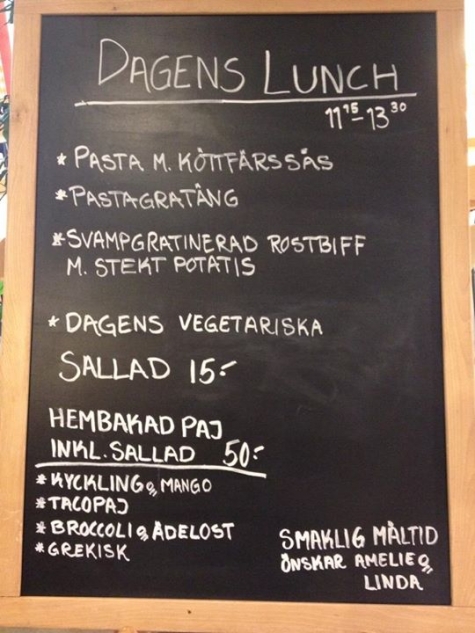 DAGENS LUNCH
11 15 - 13 30
* PASTA M. KÖTTFÄRSSÅS
* PASTAGRATÄNG
* SVAMPGRATINERAD ROSTBIFF
M. STEKT POTATIS
* DAGENS VEGETARISKA
SALLAD 15:-
HEMBAKAD PAJ
INKL. SALLAD 50:-
* KYCKLING & MANGO
* TACOPAJ
* BROCCOLI & ÄDELOST
* GREKISK
SMAKLIG MÅLTID
ÖNSKAR AMELIE &
LINDA